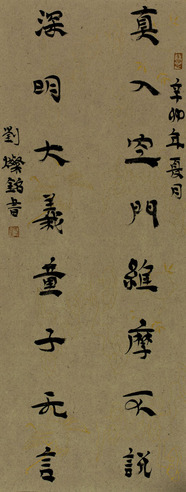 辛卯年夏月
真入空門維摩不說
深明大義童子无言
劉燦銘書